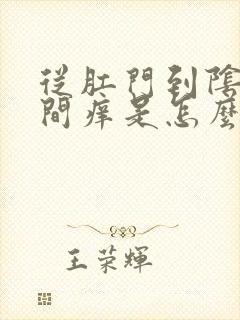 從肛門到陰
間痒是怎麼
王荣輝